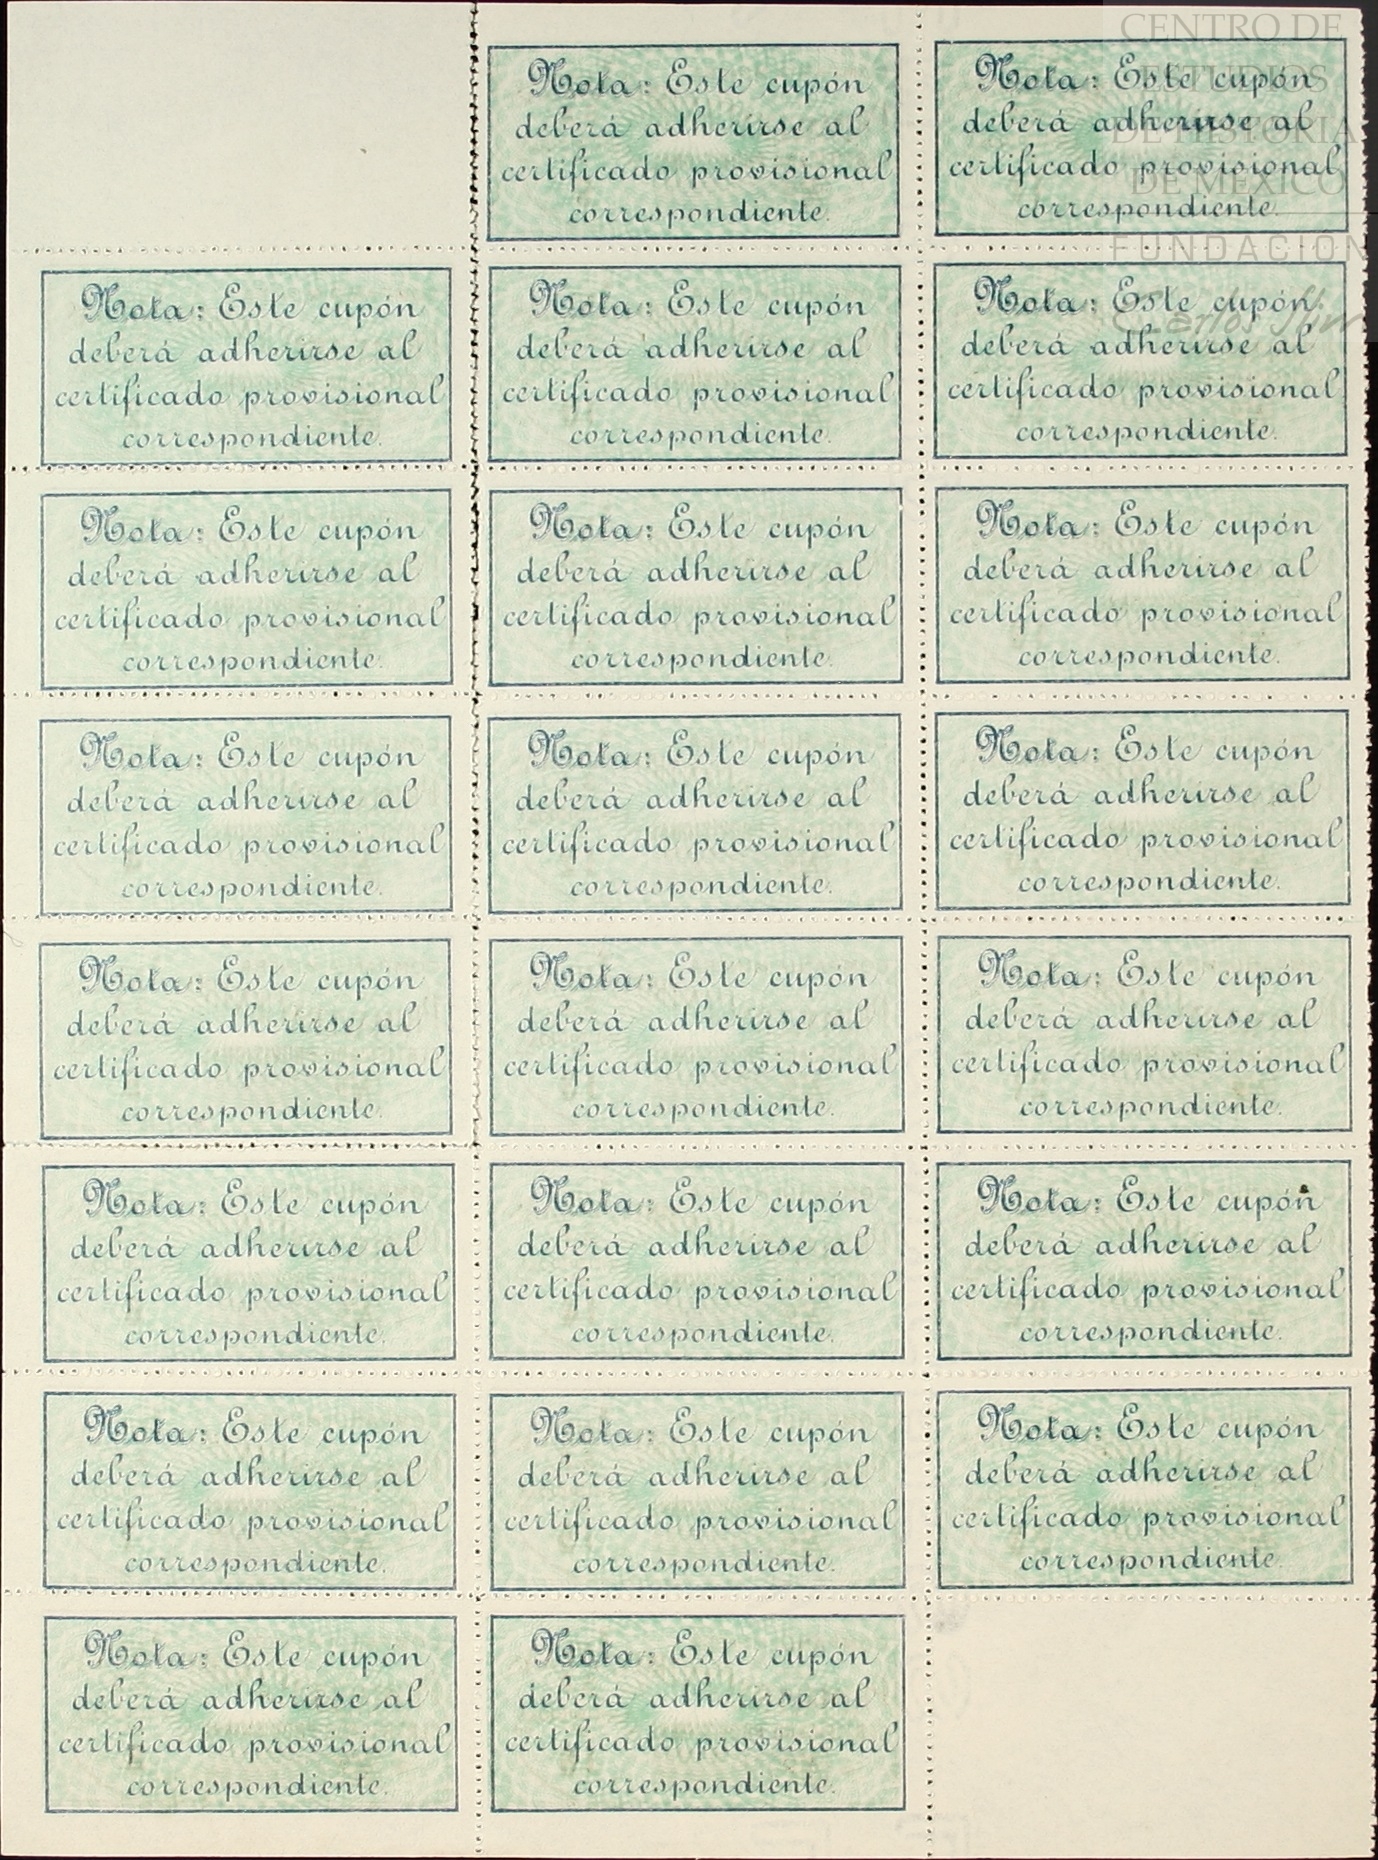 CENTRO DE
ESTUDIOS
DE HISTORIA
DE MEXICO
FUNDACION
Nota: Este cupón
deberá adherirse al
certificado provisional
correspondiente.
Nota: Este cupón
deberá adherirse al
certificado provisional
correspondiente.
Nota: Este cupón
deberá adherirse al
certificado provisional
correspondiente.
Nota: Este cupón
deberá adherirse al
certificado provisional
correspondiente.
Nota: Este cupón
deberá adherirse al
certificado provisional
correspondiente.
Nota: Este cupón
deberá adherirse al
certificado provisional
correspondiente.
Nota: Este cupón
deberá adherirse al
certificado provisional
correspondiente.
Nota: Este cupón
deberá adherirse al
certificado provisional
correspondiente.
Nota: Este cupón
deberá adherirse al
certificado provisional
correspondiente.
Nota: Este cupón
deberá adherirse al
certificado provisional
correspondiente.
Nota: Este cupón
deberá adherirse al
certificado provisional
correspondiente.
Nota: Este cupón
deberá adherirse al
certificado provisional
correspondiente.
Nota: Este cupón
deberá adherirse al
certificado provisional
correspondiente.
Nota: Este cupón
deberá adherirse al
certificado provisional
correspondiente.
Nota: Este cupón
deberá adherirse al
certificado provisional
correspondiente.
Nota: Este cupón
deberá adherirse al
certificado provisional
correspondiente.
Nota: Este cupón
deberá adherirse al
certificado provisional
correspondiente.
Nota: Este cupón
deberá adherirse al
certificado provisional
correspondiente.
Nota: Este cupón
deberá adherirse al
certificado provisional
correspondiente.
Nota: Este cupón
deberá adherirse al
certificado provisional
correspondiente.
Nota: Este cupón
deberá adherirse al
certificado provisional
correspondiente.
Nota: Este cupón
deberá adherirse al
certificado provisional
correspondiente.